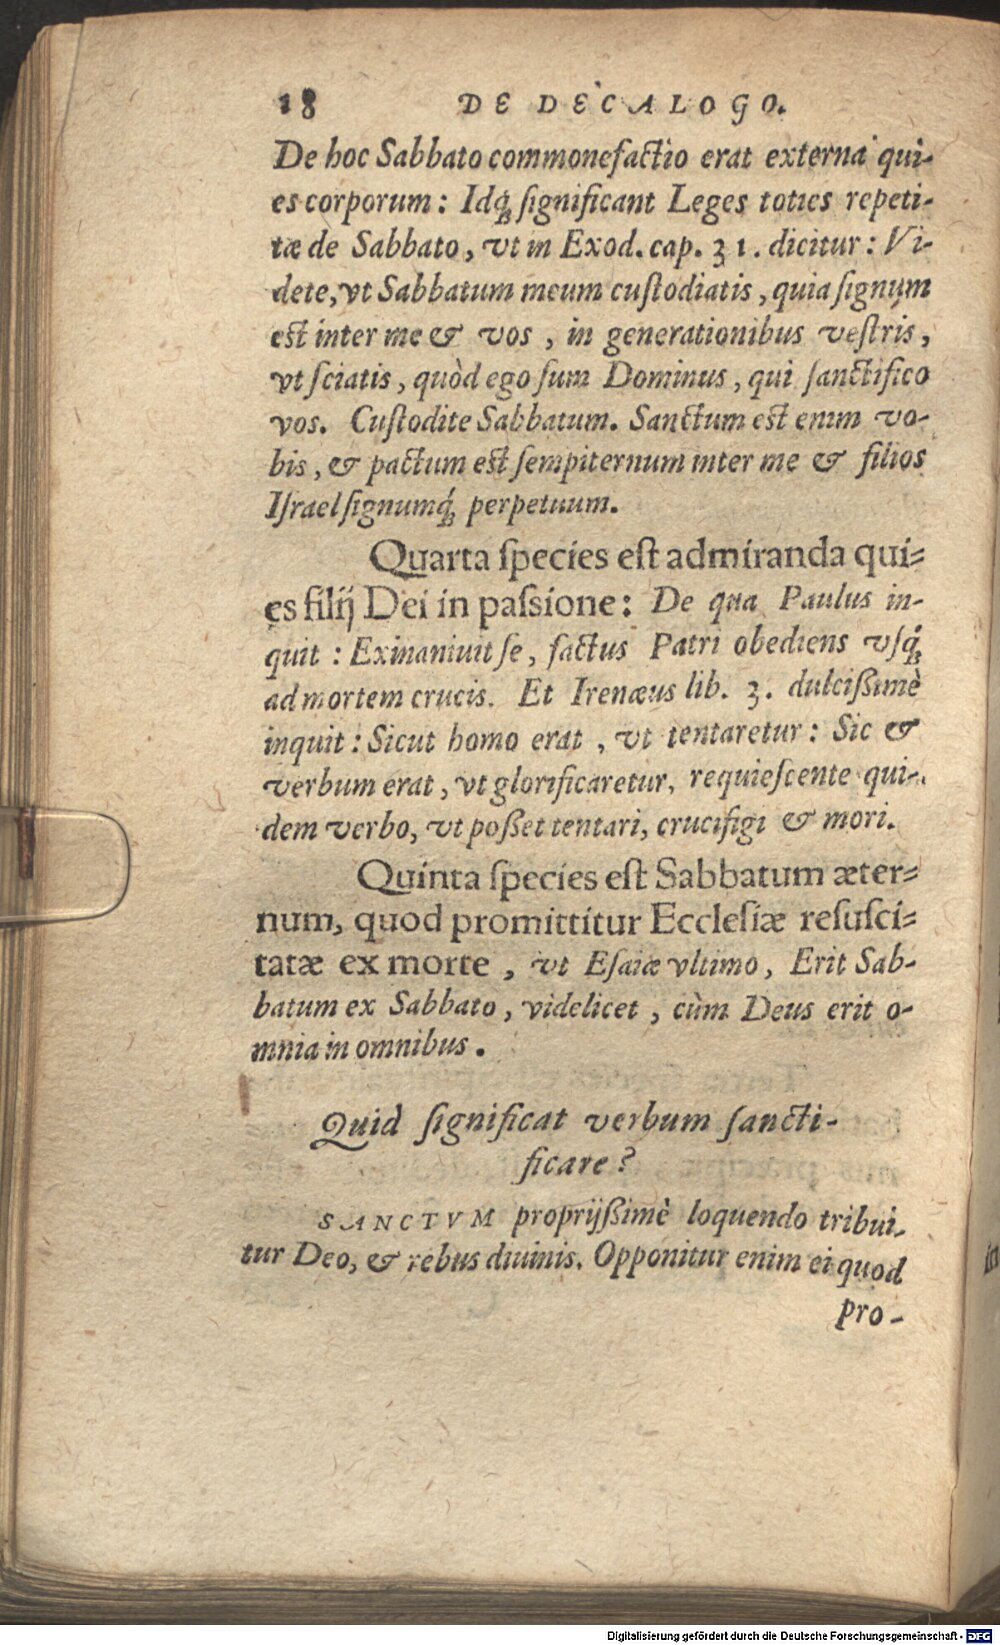 18 DE DECALOGO.
De hoc Sabbato commonefactio erat externa qui-
es corporum: Idq́; ſignificant Leges toties repeti-
tæ de Sabbato, vt in Exod. cap. 31. dicitur: Vi-
dete, vt Sabbatum meum cuſtodiatis, quia ſignum
est inter me & vos, in generationibus veſtris,
vt ſciatis, quòd ego ſum Dominus, qui ſanctifico
vos. Cuſtodite Sabbatum. Sanctum est enim vo-
bis, & pactum est ſempiternum inter me & filios
Iſrael ſignumq́; perpetuum.
Quarta ſpecies eſt admiranda qui=
es filij Dei in paſsione: De qua Paulus in-
quit: Exinaniuit ſe, factus Patri obediens vſq́;
ad mortem crucis. Et Irenæus lib. 3. dulcißimè
inquit: Sicut homo erat, vt tentaretur: Sic &
verbum erat, vt glorificaretur, requieſcente qui-
dem verbo, vt poßet tentari, crucifigi & mori.
Quinta ſpecies eſt Sabbatum æter=
num, quod promittitur Eccleſiæ reſuſci=
tatæ ex morte, vt Eſaiæ vltimo, Erit Sab-
batum ex Sabbato, videlicet, cùm Deus erit o-
mnia in omnibus.
Quid ſignificat verbum ſancti-
ficare?
SANCTVM proprijßimè loquendo tribui-
tur Deo, & rebus diuinis. Opponitur enim ei quod
pro-
in
Digitalisierung gefördert durch die Deutsche Forschungsgemeinschaft - DFG